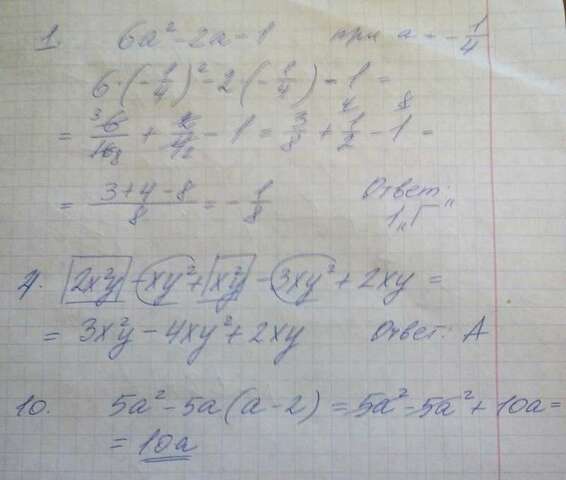 1. 6a² - 2a - 1 при a = -1/4
6·(-1/4)² - 2·(-1/4) - 1 =
= 6/16 + 2/4 - 1 = 3/8 + 1/2 - 1 =
= (3+4-8)/8 = -1/8 Ответ:
1 „Г"
7. 2x²y - xy² + x²y - 3xy² + 2xy =
= 3x²y - 4xy² + 2xy Ответ: А
10. 5a² - 5a(a-2) = 5a² - 5a² + 10a =
= 10a